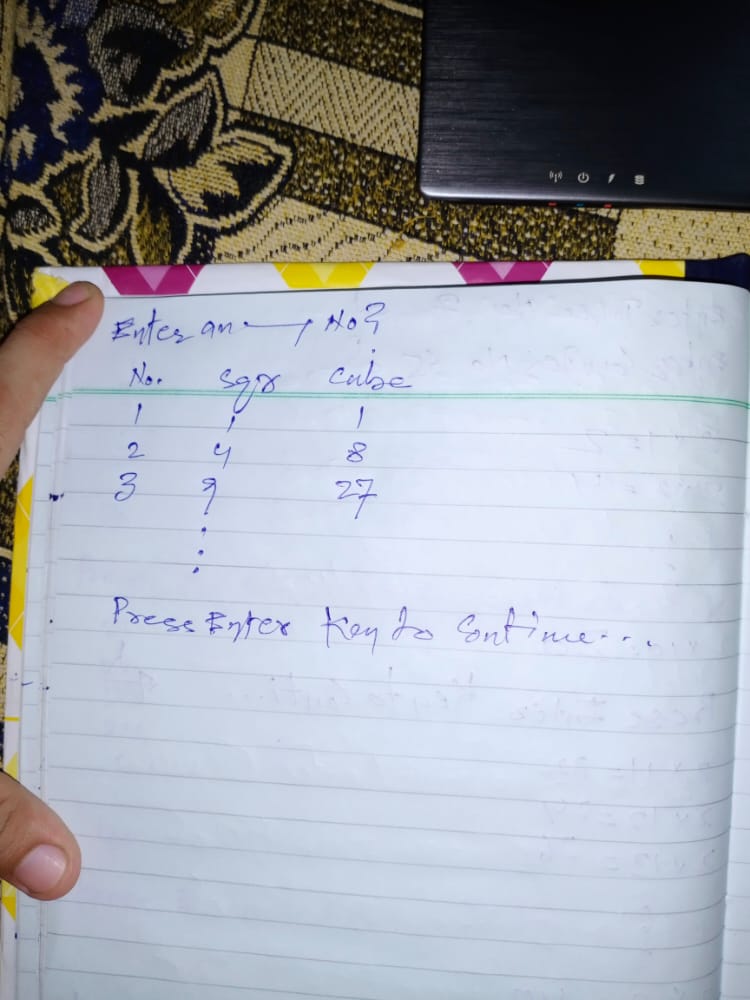 Enter an No?
No. Sqr Cube
1 1 1
2 4 8
3 9 27
Press Enter Key to Continue...